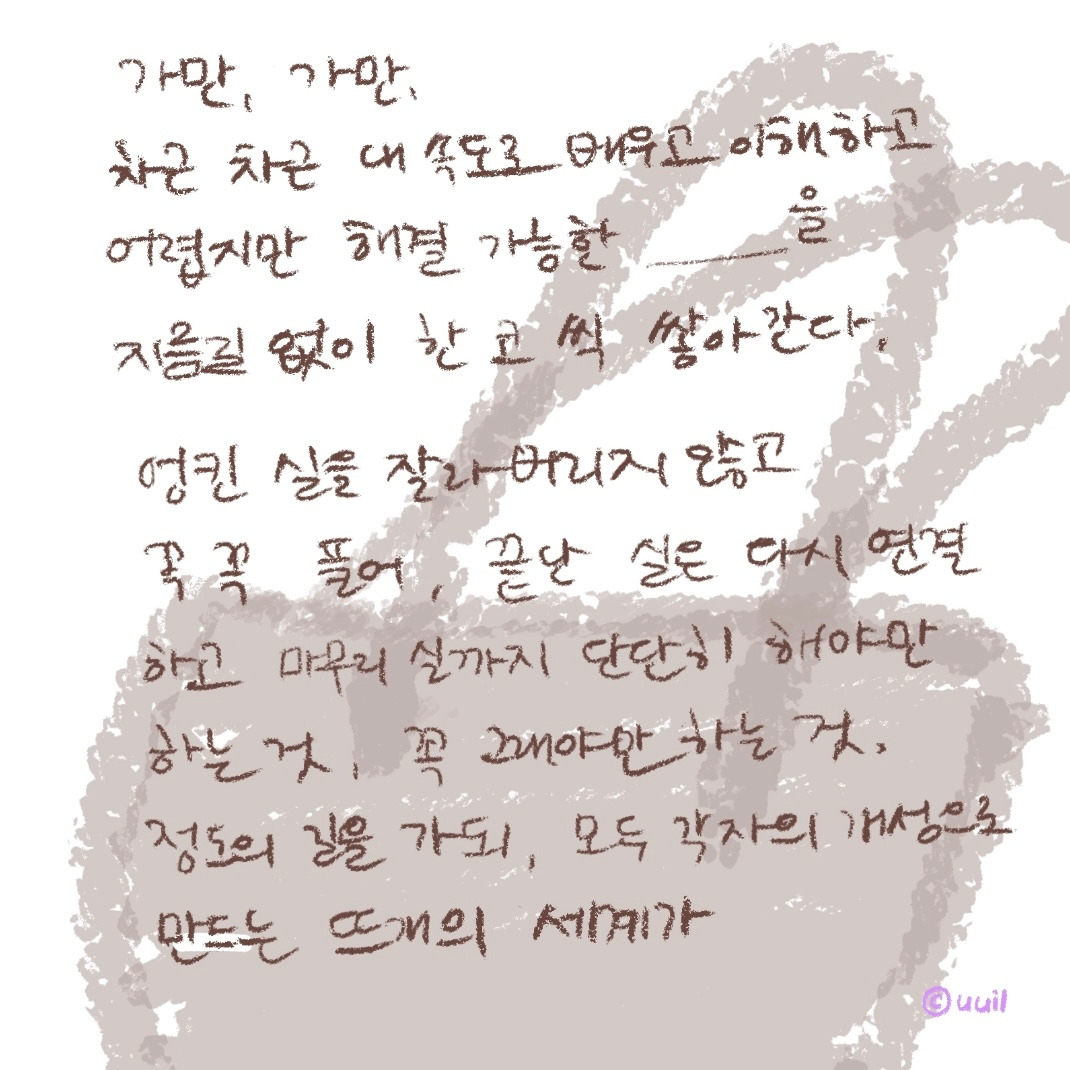 가만, 가만.
차근 차근 내 속도로 배우고 이해하고
어렵지만 해결 가능한 ______을
지름길 없이 한 코 씩 쌓아간다.
엉킨 실을 잘라버리지 않고
꼭 꼭 풀어, 끝난 실은 다시 연결
하고 마무리 실까지 단단히 해야만
하는 것, 꼭 그래야만 하는 것.
정도의 길을 가되, 모두 각자의 개성으로
만드는 뜨개의 세계가
©uuil